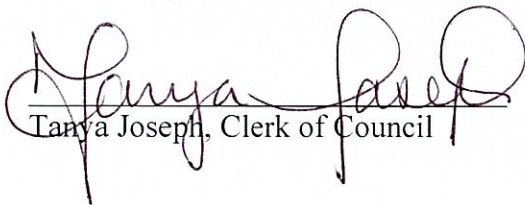 Tanya Joseph
Tanya Joseph, Clerk of Council